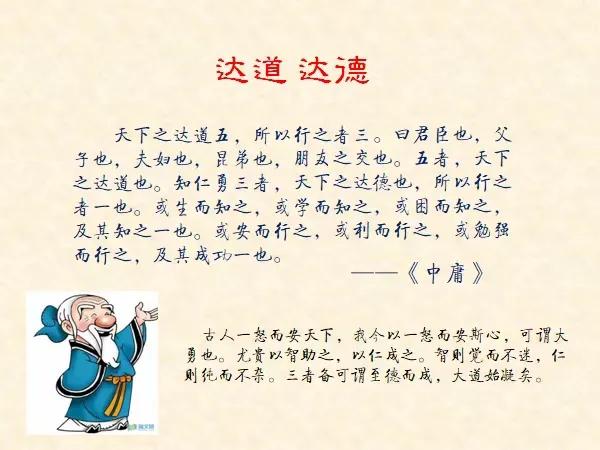 达道 达德
天下之达道五，所以行之者三。曰君臣也，父
子也，夫妇也，昆弟也，朋友之交也。五者，天下
之达道也。知仁勇三者，天下之达德也，所以行之
者一也。或生而知之，或学而知之，或困而知之，
及其知之一也。或安而行之，或利而行之，或勉强
而行之，及其成功一也。
——《中庸》
古人一怒而安天下，我今以一怒而安斯心，可谓大
勇也。尤贵以智助之，以仁成之。智则觉而不迷，仁
则纯而不杂。三者备可谓至德而成，大道始凝矣。